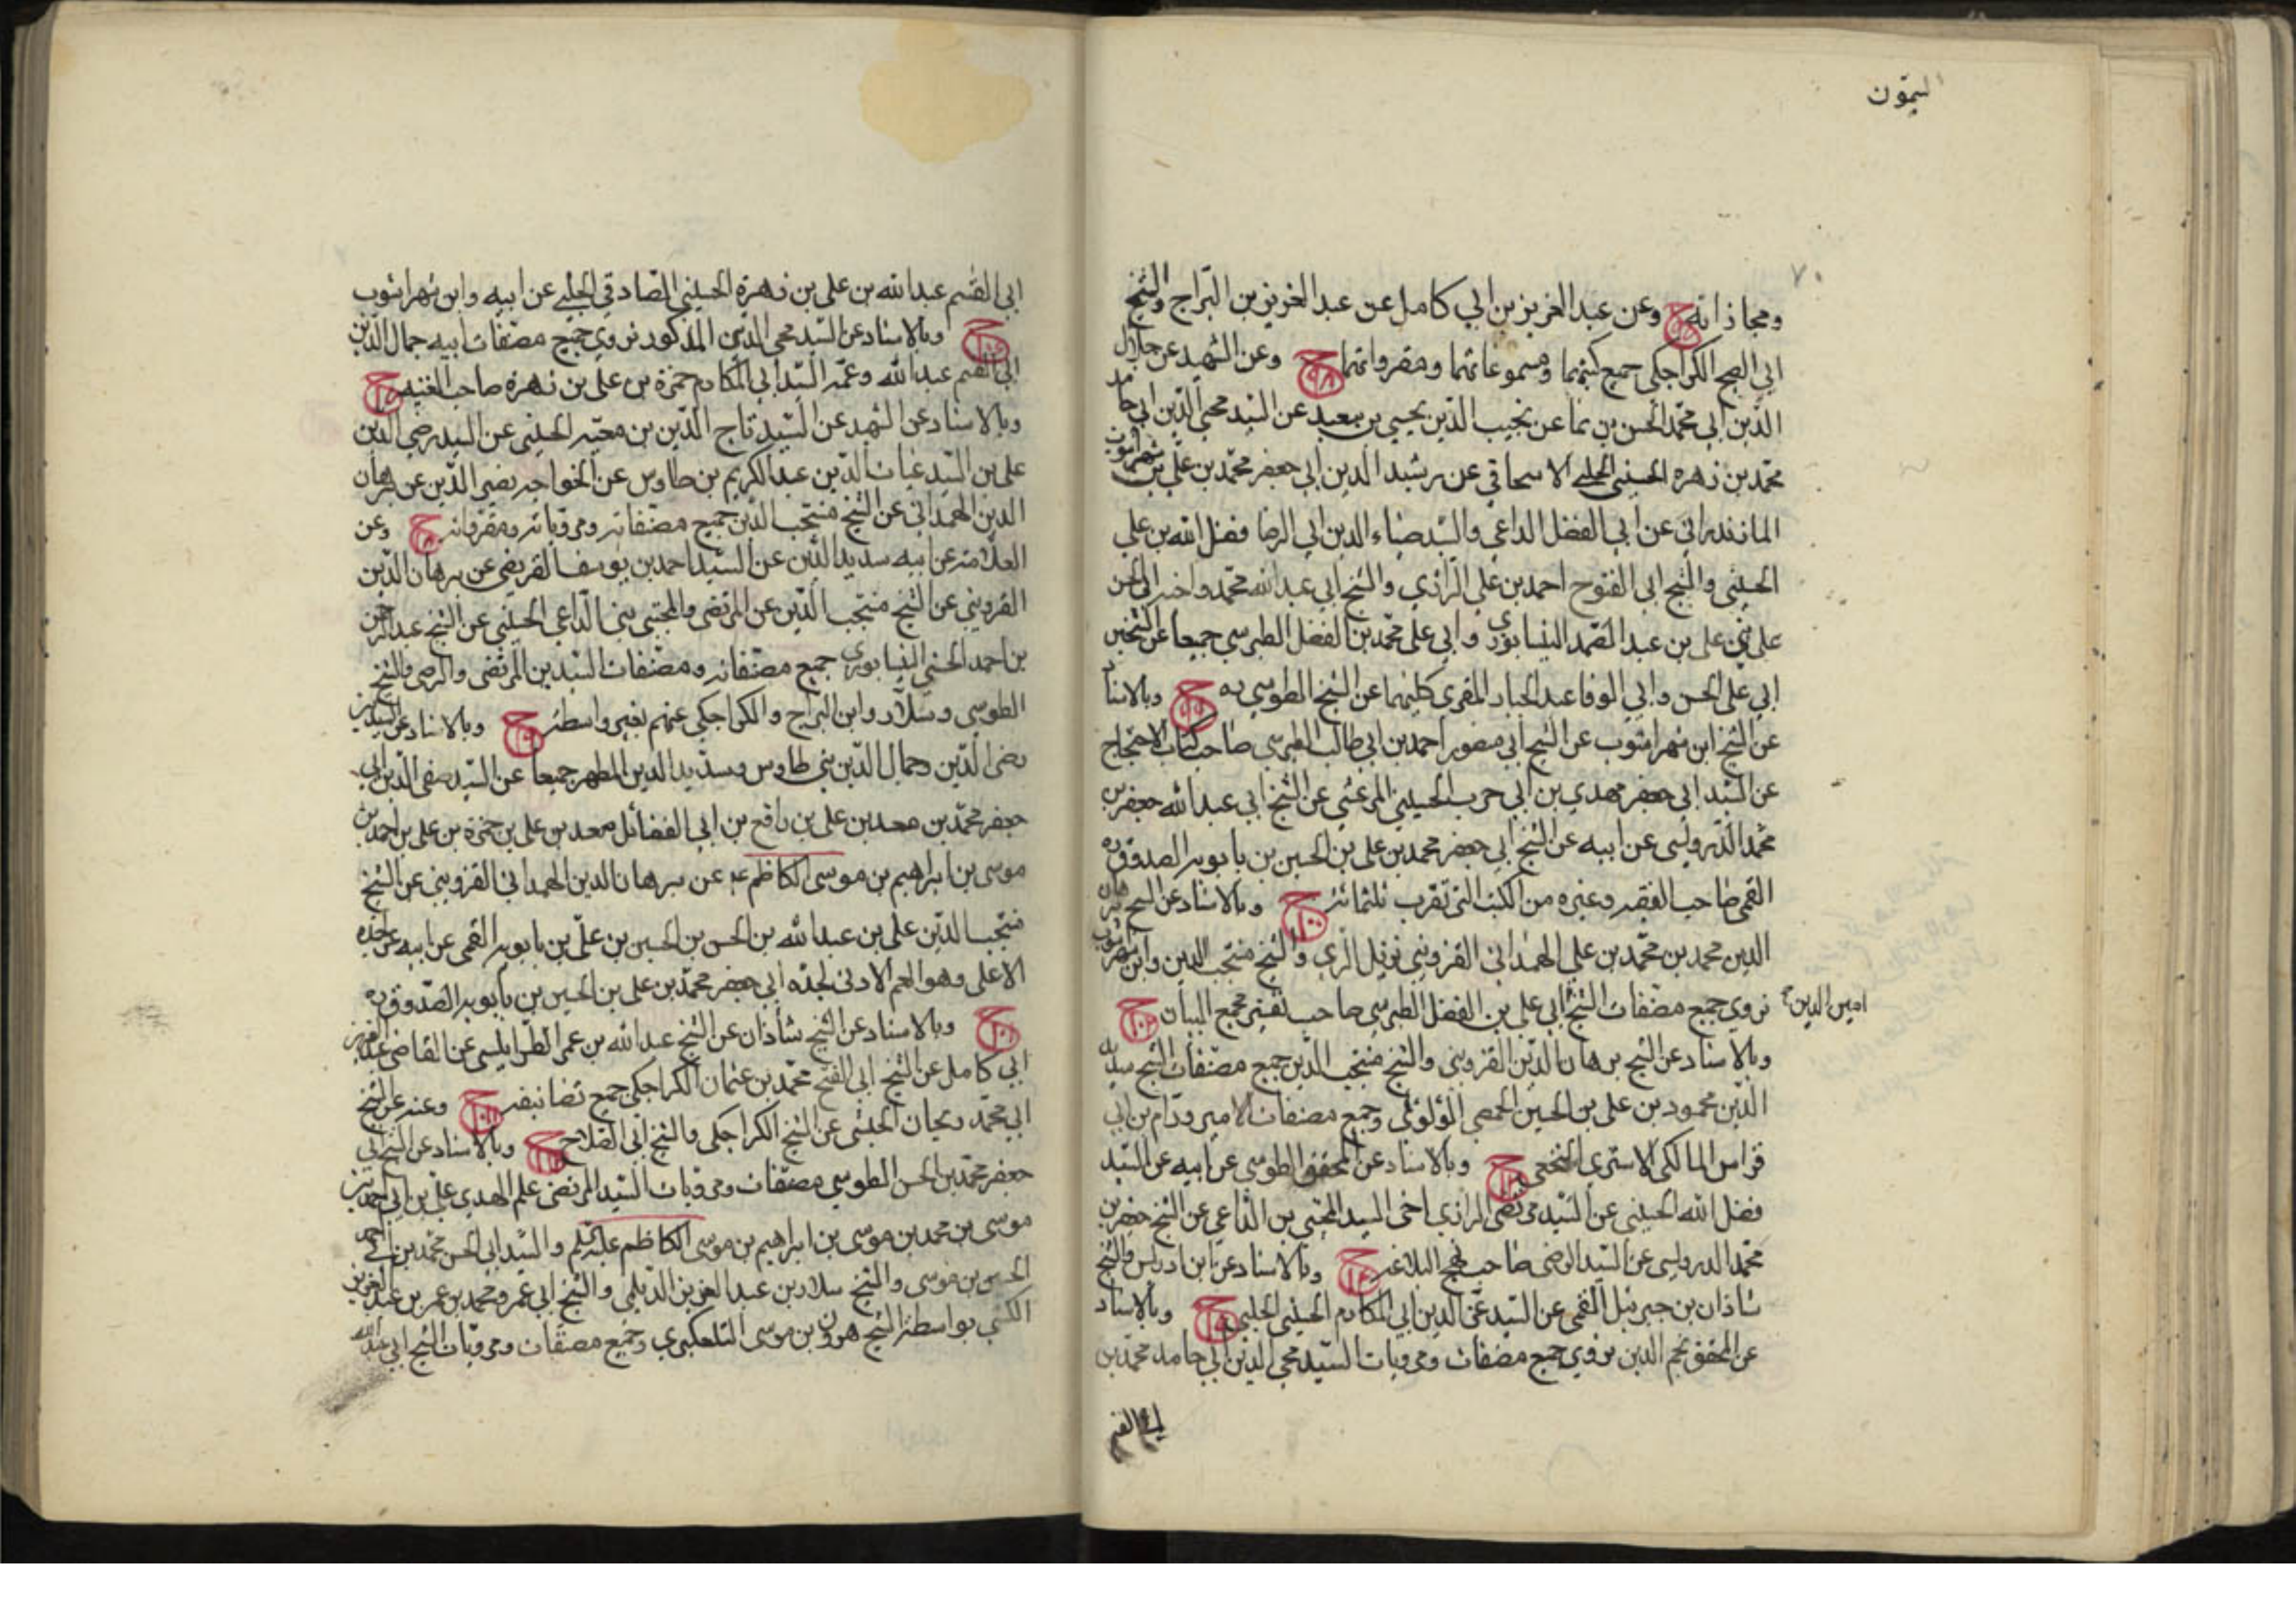 اليمون
٧٠
ومجازاته ح وعن عبد العزيز بن ابي كامل عن عبد العزيز بن البراج والشيخ
ابي الفتح الكراجكي جميع كتبهما ومسموعاتهما ومقرواتهما ح وعن الشهيد عن جلال
الدين ابي محمد الحسن بن نما عن نجيب الدين يحيى بن سعيد عن السيد محي الدين ابي حامد
محمد بن زهره الحسيني الحلبي الاسحاقي عن رشيد الدين ابي جعفر محمد بن علي بن شهراشوب
المازندراني عن ابي الفضل الداعي والسيد ضياء الدين ابي الرضا فضل الله بن علي
الحسيني والشيخ ابي الفتوح احمد بن علي الرازي والشيخ ابي عبد الله محمد واخيه ابي الحسن
علي بني علي بن عبد الصمد النيسابوري وابي علي محمد بن الفضل الطبرسي جميعا عن الشيخين
ابي علي الحسن وابي الوفا عبد الجبار المقري كليهما عن الشيخ الطوسي ره ح وبالاسناد
عن الشيخ ابن شهراشوب عن الشيخ ابي منصور احمد بن ابي طالب الطبرسي صاحب كتاب الاحتجاج
عن السيد ابي جعفر مهدي بن ابي حرب الحسيني المرعشي عن الشيخ ابي عبد الله جعفر بن
محمد الدرويسى عن ابيه عن الشيخ ابي جعفر محمد بن علي بن الحسين بن بابويه الصدوق ره
القمي صاحب الفقيه وغيره من الكتب التي تقرب ثلثمائة ح ١٠٠ وبالاسناد عن الشيخ برهان
الدين محمد بن محمد بن علي الهمداني القزويني نزيل الري والشيخ منتجب الدين وابن شهراشوب
نروي جميع مصنفات الشيخ ابي علي بن الفضل الطبرسي صاحب تفسير مجمع البيان ح
امين الدين
وبالاسناد عن الشيخ برهان الدين القزويني والشيخ منتجب الدين جميع مصنفات الشيخ سديد
الدين محمود بن علي بن الحسين الحمصي الؤلوئى وجمع مصنفات الامير ورام بن ابي
فراس المالكي الاشتري النخعي ح وبالاسناد عن المحقق الطوسي عن ابيه عن السيد
فضل الله الحسيني عن السيد مرتضى الرازي اخى السيد المجتبى بن الداعي عن الشيخ جعفر بن
محمد الدرويسى عن السيد الرضى صاحب نهج البلاغة ح وبالاسناد عن ابن ادريس والشيخ
شاذان بن جبرئيل القمى عن السيد عز الدين ابي المكارم الحسيني الحلبي ح وبالاسناد
عن المحقق نجم الدين نروي جميع مصنفات ومرويات السيد محي الدين ابي حامد محمد بن
ابي القسم
ابي القسم عبد الله بن علي بن زهرة الحسيني الصادقي الحلبي عن ابيه وابن شهراشوب
ح وبالاسناد عن السيد محي الدين المذكور نروي جميع مصنفات ابيه جمال الدين
ابي القسم عبد الله وعمه السيد ابي المكارم حمزة بن علي بن زهرة صاحب الغنيه ح
وبالاسناد عن الشهيد عن السيد تاج الدين بن معيه الحسيني عن السيد رضي الدين
علي بن السيد غياث الدين عبد الكريم بن طاوس عن الخواجه نصير الدين عن برهان
الدين الهمداني عن الشيخ منتجب الدين جميع مصنفاته ومروياته ومقرواته ح وعن
العلامة عن ابيه سديد الدين عن السيد احمد بن يوسف العريضي عن برهان الدين
القزويني عن الشيخ منتجب الدين عن المرتضى والمجتبى بني الداعي الحسيني عن الشيخ عبد الرحمن
بن احمد الحسني النيسابوري جميع مصنفاته ومصنفات السيدين المرتضى والرضي والشيخ
الطوسي وسلار وابن البراج والكراجكي عنهم بغير واسطة ح وبالاسناد عن السيدين
رضي الدين وجمال الدين بني طاوس وسديد الدين المطهر جميعا عن السيد صفي الدين ابي
جعفر محمد بن معد بن علي بن رافع بن ابي الفضائل معد بن علي بن حمزة بن علي بن احمد بن
موسى بن ابراهيم بن موسى الكاظم ع عن برهان الدين الهمداني القزويني عن الشيخ
منتجب الدين علي بن عبد الله بن الحسن بن الحسين بن علي بن بابويه القمي عن ابيه عن جده
الاعلى وهو العم الادنى لجده ابي جعفر محمد بن علي بن الحسين بن بابويه الصدوق ره
ح وبالاسناد عن الشيخ شاذان عن الشيخ عبد الله بن عمر الطرابلسي عن القاضي عبد العزيز
ابي كامل عن الشيخ ابي الفتح محمد بن عثمان الكراجكي جميع تصانيفه ح وعنه عن الشيخ
ابي محمد ريحان الحبشي عن الشيخ الكراجكي والشيخ ابي الصلاح ح وبالاسناد عن الشيخ ابي
جعفر محمد بن الحسن الطوسي مصنفات ومرويات السيد المرتضى علم الهدى علي بن ابي احمد بن
موسى بن محمد بن موسى بن ابراهيم بن موسى الكاظم عليه السلم والسيد ابي الحسن محمد بن ابي احمد
الحسين بن موسى والشيخ سلار بن عبد العزيز الديلمي والشيخ ابي عمرو محمد بن عمر بن عبد العزيز
الكشي بواسطة الشيخ هرون بن موسى التلعكبري وجميع مصنفات ومرويات الشيخ ابي عبد الله